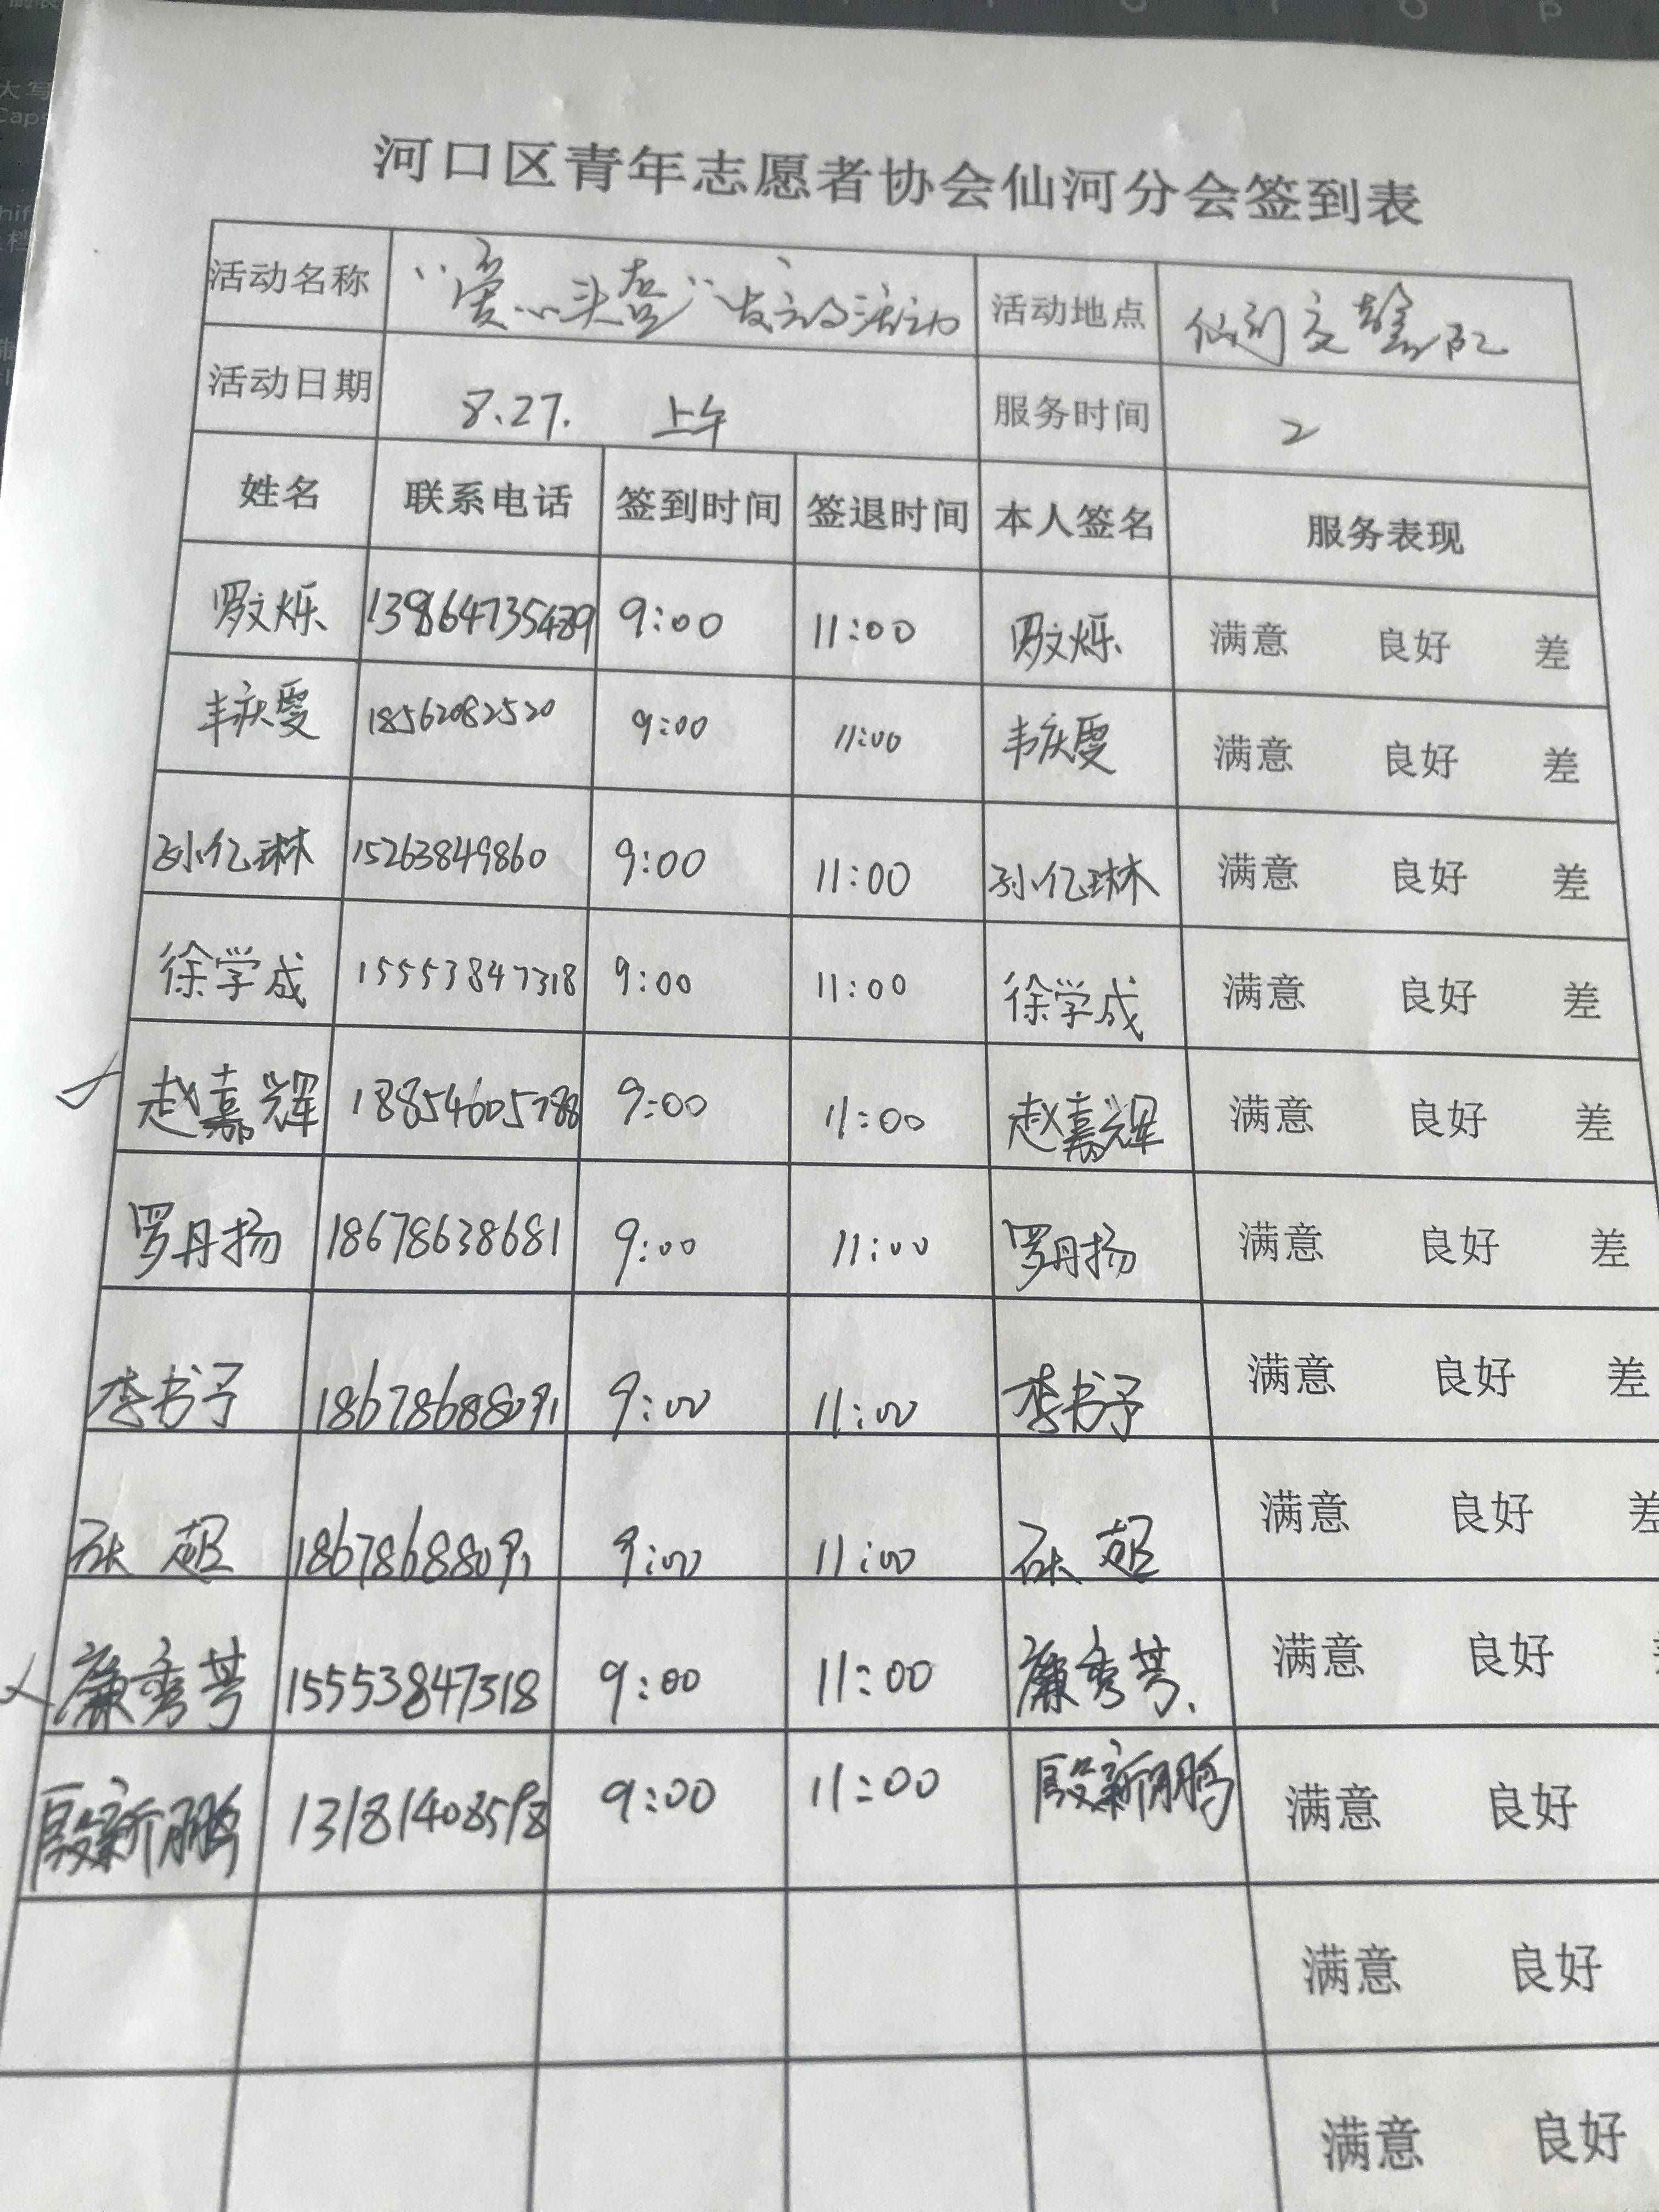 河口区青年志愿者协会仙河分会签到表
活动名称 “爱心头盔”发放活动 活动地点 仙河交警队
活动日期 8.27. 上午 服务时间 2
姓名 联系电话 签到时间 签退时间 本人签名 服务表现
罗文烁 9:00 11:00 罗文烁 满意 良好 差
韦庆雯 18562082520 9:00 11:00 韦庆雯 满意 良好 差
孙亿琳 15263849860 9:00 11:00 孙亿琳 满意 良好 差
徐学成 15553847318 9:00 11:00 徐学成 满意 良好 差
赵嘉辉 18854605788 9:00 11:00 赵嘉辉 满意 良好 差
罗丹扬 18678638681 9:00 11:00 罗丹扬 满意 良好 差
李书予 18678688091 9:00 11:00 李书予 满意 良好 差
超 18678688091 9:00 11:00 超 满意 良好 差
廉秀芩 15553847318 9:00 11:00 廉秀芩 满意 良好
殷新鹏 13181408598 9:00 11:00 殷新鹏 满意 良好
满意 良好
满意 良好